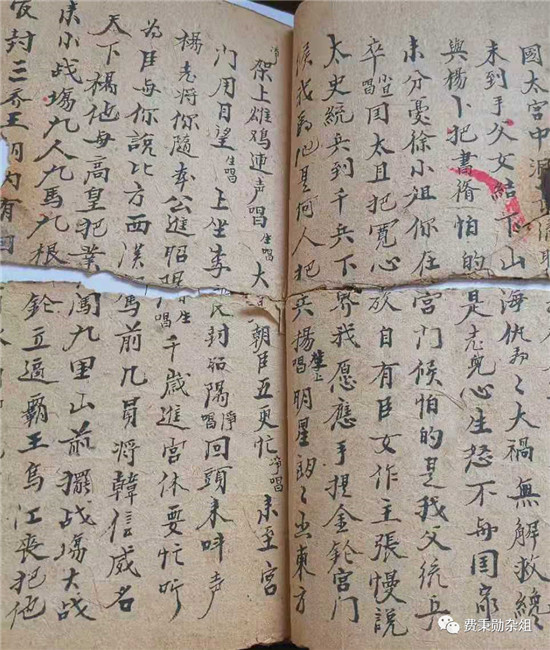 國太宫中
未到手父女結下山海仇 〻大禍無解救總
與楊卜把書脩怕的是 兒心生怒不與国家
未分憂徐小姐你住宫門候怕的是我父統兵
卒小旦唱国太且把寛心放自有臣女作主張慢說
太史統兵到千兵下界我愿應手提金鈴宫门
候我為他是何人把兵揚生上唱明星朗〻出東方
净唱架上雄鸡連声唱生唱大 朝臣五更忙净唱来至宫
门用目望生唱上坐李 封昭陽净唱回頭来叫声
楊志將你隨李公進昭陽生唱千歲進宫休要忙听
為臣与你說比方西漢 馬前几員將韓信威名
天下揚他与高皇把業闖九里山前擺战場大战
未小战場九人九馬九根鈴立逼霸王烏江丧把他
封三齐王 内有
费秉勋杂俎